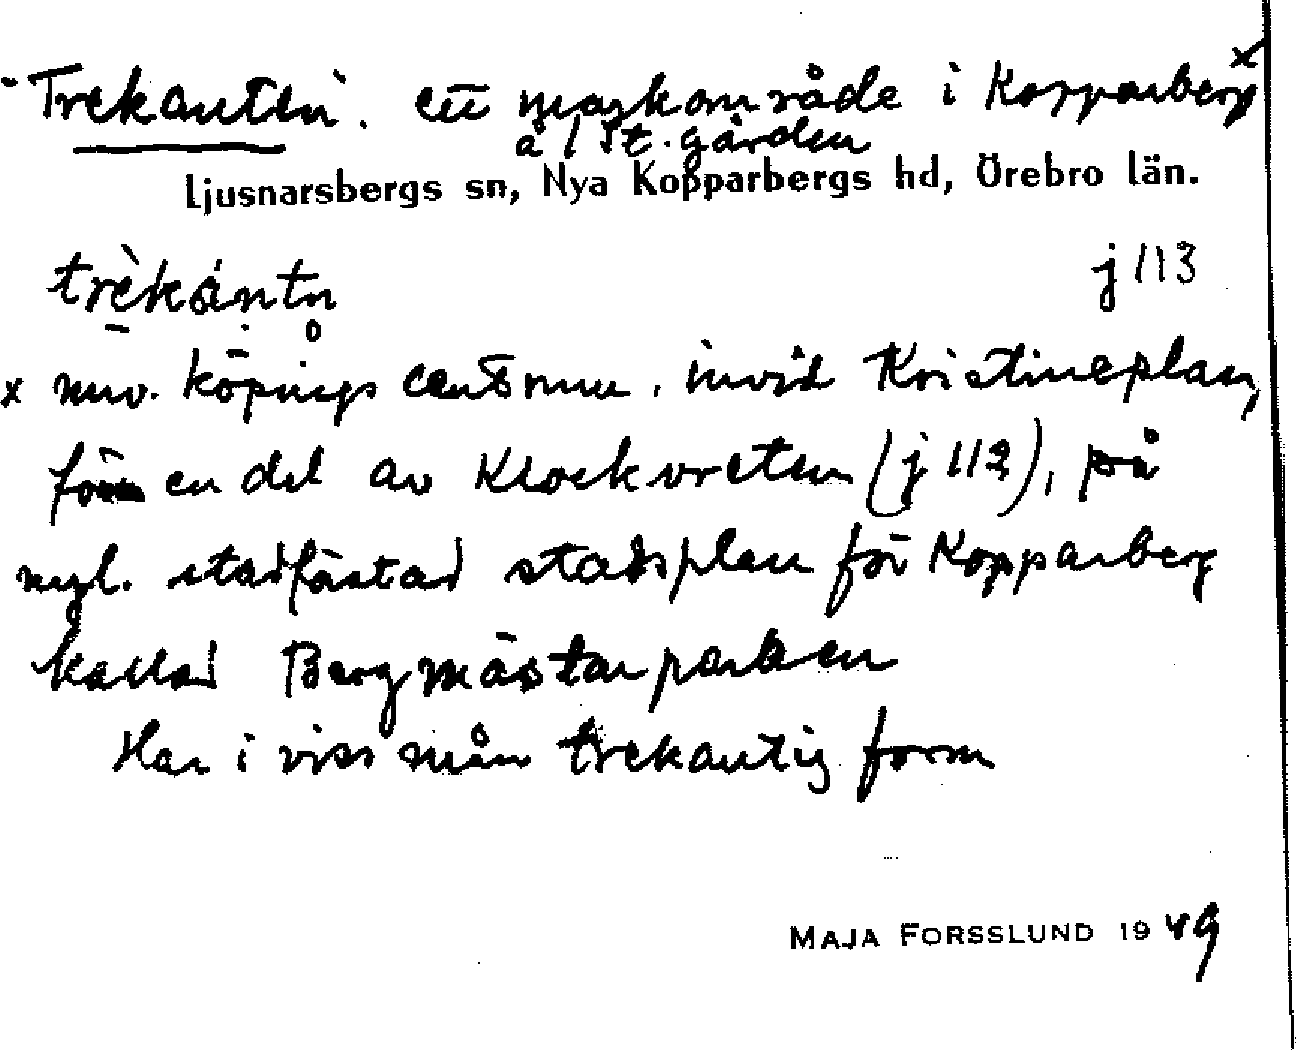 "Trekanten". ett markområde i Kopparberg x
å 1 St. gården
Ljusnarsbergs sn, Nya Kopparbergs hd, Örebro län.
trèkántn j 113
x nuv. köpings centrum, invid Kristineplan,
förr en del av Klockvreten (j 112), på
nyl. stadfästad stadsplan för Kopparberg
kallad Bergmästarparken
Har i viss mån trekantig form
MAJA FORSSLUND 1949